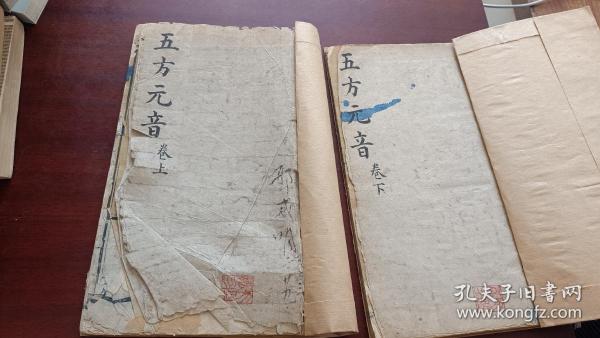 五方元音
卷上
五方元音
卷下
孔夫子旧书网
www.kongfz.com